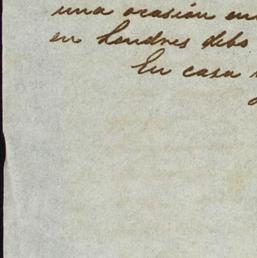 una ocasión en
en Londres debo
En casa